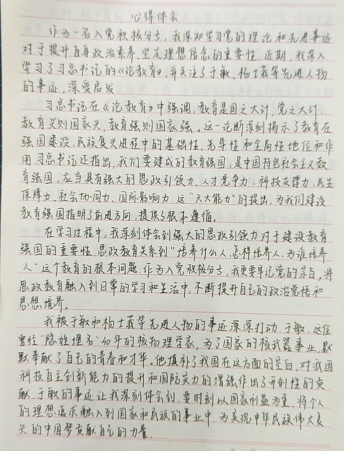 心得体会
作为一名入党积极分子，我深知学习党的理论和先进事迹
对于提升自身政治素养、坚定理想信念的重要性。近期，我深入
学习了习总书记的《论教育》，并关注了于敏、杨士莪等先进人物
的事迹，深受启发
习总书记在《论教育》中强调，教育是国之大计、党之大计。
教育兴则国家兴，教育强则国家强。这一论断深刻揭示了教育在
强国建设、民族复兴进程中的基础性、先导性和全局性地位和作
用。习总书记还指出，我们要建成的教育强国，是中国特色社会主义教
育强国，应当具有强大的思政引领力、人才竞争力、科技支撑力、民生
保障力、社会协同力、国际影响力。这“六大能力”的提出，为我们建设
教育强国指明了前进方向，提供了根本遵循。
在学习过程中，我深刻体会到强大的思政引领力对于建设教育
强国的重要性。思政教育关系到“培养什么人、怎样培养人、为谁培养
人”这个教育的根本问题。作为入党积极分子，我更要牢记党的宗旨，将
思政教育融入到日常的学习和生活中，不断提升自己的政治觉悟和
思想境界。
我被于敏和杨士莪等先进人物的事迹深深打动。于敏，这位
曾经“隐姓埋名”的核物理学家，为了国家的核武器事业，默
默奉献了自己的青春和才华。他填补了我国在这方面的空白，对我国
科技自主创新能力的提升和国防实力的增强作出了开创性的贡
献。于敏的事迹让我深刻体会到，要时刻以国家利益为重，将个人
的理想追求融入到国家和民族的事业中，为实现中华民族伟大复
兴的中国梦贡献自己的力量。